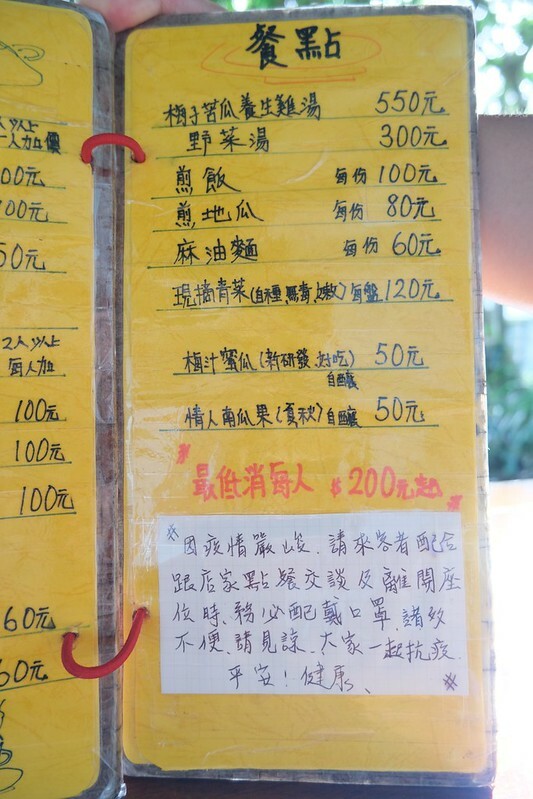 人以上
一人加價
00元
100元
50元
2人以上
每人加
100元
100元
100元
60元
60元
餐點
梅子苦瓜養生雞湯 550元
野菜湯 300元
煎飯 每份 100元
煎地瓜 每份 80元
麻油麵 每份 60元
現摘青菜(自種、無毒、嫩) 每盤 120元
梅汁蜜瓜(新研發、好吃) 50元
自釀
情人南瓜果(夏秋) 自釀 50元
最低消每人 $200元起
※因疫情嚴峻、請來客者配合
跟店家點餐交談及離開座
位時、務必配戴口罩、諸多
不便、請見諒、大家一起抗疫.
平安!健康、 ※